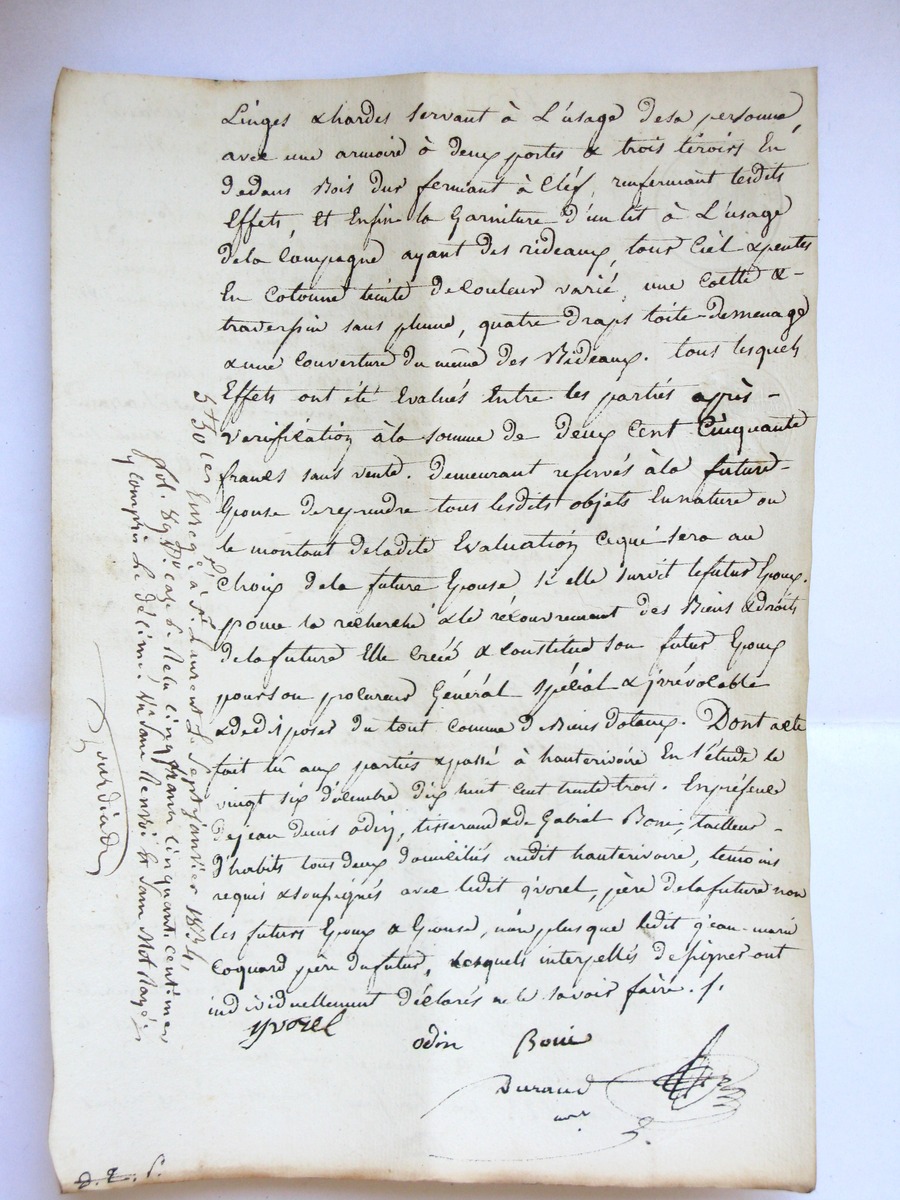 Linges & hardes servant à L'usage de sa personne,
avec une armoire à deux portes & trois tiroirs En
dedans Bois dur fermant à Cléf, renfermant lesdits
Effets, Et Enfin la Garniture d'un lit à L'usage
de la Campagne ayant des rideaux, tour Ciel & pentes
En Cotonne teinte de couleur varié, une Coette &-
traversin sans plume, quatre draps toile de menage
& une Couverture du même des Rideaux. tous lesquels
Effets ont été Evalués Entre les parties après-
verification à la somme de deux Cent Cinquante
francs sans vente. demeurant reservés à la future-
Epouse de reprendre tous lesdits objets En nature ou
le montant de ladite Evaluation Ce qui sera au
Choix de la future Epouse si elle survit le futur Epoux.
pour la recherche & le récouvrement des Biens & droits
de la future Elle Créé & Constitue son futur Epoux
pour son procureur Général spécial & irrévocable
& de disposer du tout comme de Biens dotaux. Dont acte
fait lû aux parties & passé à hauterivoire En l'étude le
vingt six décembre dix huit cent trente trois. En présence
de jean denis odin, tisserand & de Gabriel Boni, tailleur-
d'habits tous deux domiciliés audit hauterivoire, temoins
requis & soussignés avec ledit yvorel, père de la future non
les futurs Epoux & Epouse, non plus que ledit jean-marie
Coquard père du futur, lesquels interpellés de signer ont
individuellement déclarés ne le savoir faire. /.
yvorel
odin Boni
Durand
d. 2. p.
5f 50 ces Enregé à St Laurent Le Sept janvier 1834,
fol. 89 Vo case 6. Reçu cinq francs cinquante centimes
y compris le décime. Un sans Renvoi & sans Mot Rayé